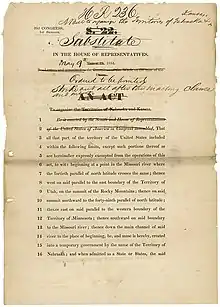 H.R. 236
33D CONGRESS,
1st SESSION.
S. 22.
Substitute
IN THE HOUSE OF REPRESENTATIVES,
May 9th 1854.
Ordered to be printed
Strike out all after the enacting clause
AN ACT
To organize the Territories of Nebraska and Kansas.
1 Be it enacted by the Senate and House of Representatives
2 of the United States of America in Congress assembled, That
3 all that part of the territory of the United States included
4 within the following limits, except such portions thereof as
5 are hereinafter expressly exempted from the operations of this
6 act, to wit: beginning at a point in the Missouri river where
7 the fortieth parallel of north latitude crosses the same; thence
8 west on said parallel to the east boundary of the Territory of
9 Utah, on the summit of the Rocky Mountains; thence on said
10 summit northward to the forty-ninth parallel of north latitude;
11 thence east on said parallel to the western boundary of the
12 Territory of Minnesota; thence southward on said boundary
13 to the Missouri river; thence down the main channel of said
14 river to the place of beginning, be, and the same is hereby, created
15 into a temporary government by the name of the Territory of
16 Nebraska; and when admitted as a State or States, the said